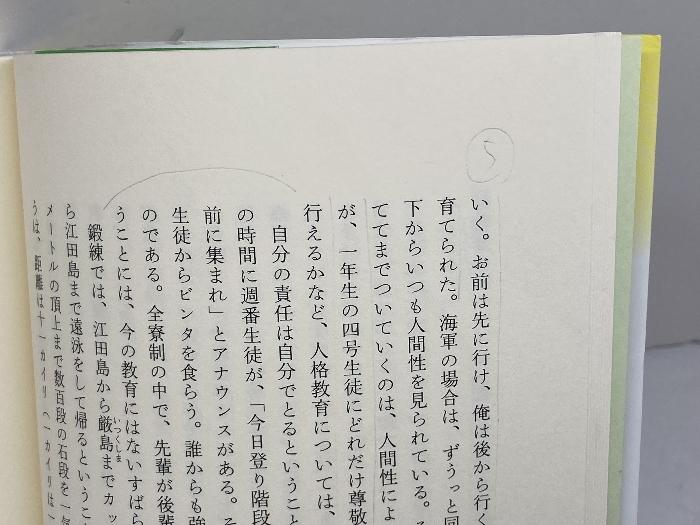 5
いく。お前は先に行け、俺は後から行く
育てられた。海軍の場合は、ずうっと同
下からいつも人間性を見られている。
ててまでついていくのは、人間性によ
が、一年生の四号生徒にどれだけ尊敬
行えるかなど、人格教育については、
自分の責任は自分でとるということ
の時間に週番生徒が、「今日登り階段
前に集まれ」とアナウンスがある。そ
生徒からビンタを食らう。誰からも強
のである。全寮制の中で、先輩が後輩
うことには、今の教育にはないすばら
鍛練では、江田島から厳島までカッ
いつくしま
ら江田島まで遠泳をして帰るというこ
メートルの頂上まで数百段の石段を一気
うは、距離は十一カイリ（一カイリは一